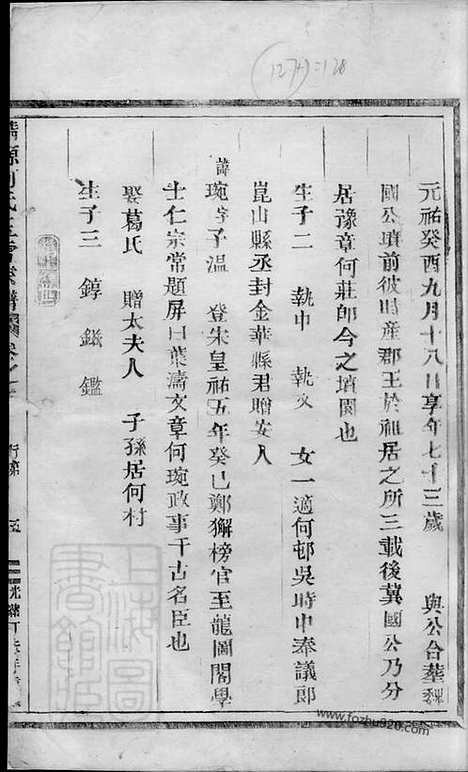 (127+)=128
元祐癸酉九月十八日享年七十三歲 與公合葬魏
國公墳前彼時産郡王於祖居之所三載後冀國公乃分
居豫章何莊即今之墳園也
生子二 執中 執文 女一適何邨吳時中奉議郎
崑山縣丞封金華縣君贈安人
諱琬字子溫 登宋皇祐五年癸巳鄭獬榜官至龍圖閣學
士仁宗常題屏曰葉濤文章何琬政事千古名臣也
娶葛氏 贈太夫人 子孫居何村
生子三 錞 鎡 鑑
行第 五
上海圖書館藏
www.fozhu920.com